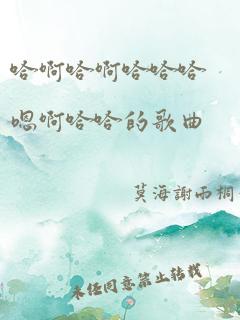 哈啊哈啊哈哈哈
嗯啊哈哈的歌曲
莫海謝雨桐
未经同意禁止转载